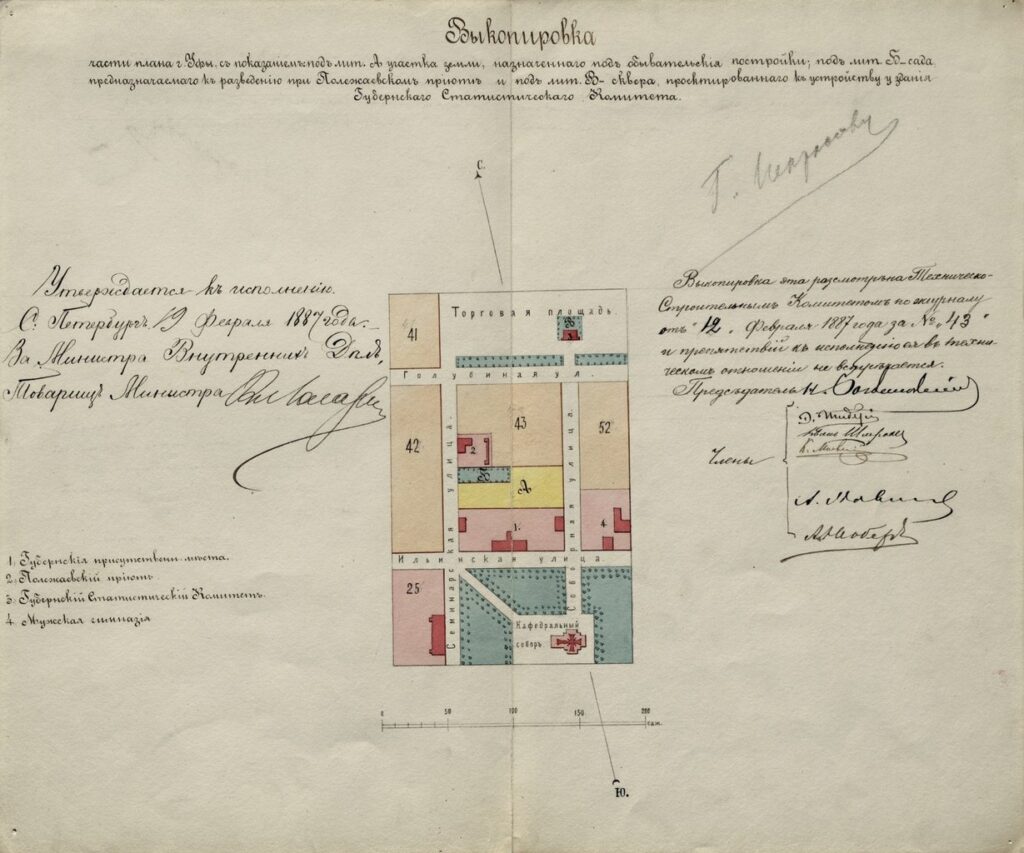 Выкопировка
части плана г. Уфы, съ показаніемъ подъ лит. А участка земли, назначеннаго подъ обывательскія постройки; подъ лит. Б - сада
предназначаемого къ разведенію при Полежаевскомъ пріютѣ и подъ лит. В - сквера, проектированнаго къ устройству у зданія
Губернскаго Статистическаго Комитета.
С.
Утверждается къ исполненію.
С. Петербургъ, 19 Февраля 1887 года.
За Министра Внутреннихъ Дѣлъ,
Товарищъ Министра
Выкопировка эта разсмотрѣна Техническо-
Строительнымъ Комитетомъ по журналу
отъ "12" Февраля 1887 года за № "43"
и препятствій къ исполненію ея въ техни-
ческомъ отношеніи не встрѣчается.
Предсѣдатель Н.
Члены
41
Торговая площадь.
В
3
Голубиная ул.
42
43
52
2
Б
А
1.
4
Семинарская улица.
Соборная улица.
Ильинская улица
25
Кафедральный
соборъ.
1. Губернскія присутствен. мѣста.
2. Полежаевскій пріютъ
3. Губернскій Статистическій Комитетъ.
4. Мужская гимназія
0 50 100 150 200
саж.
Ю.